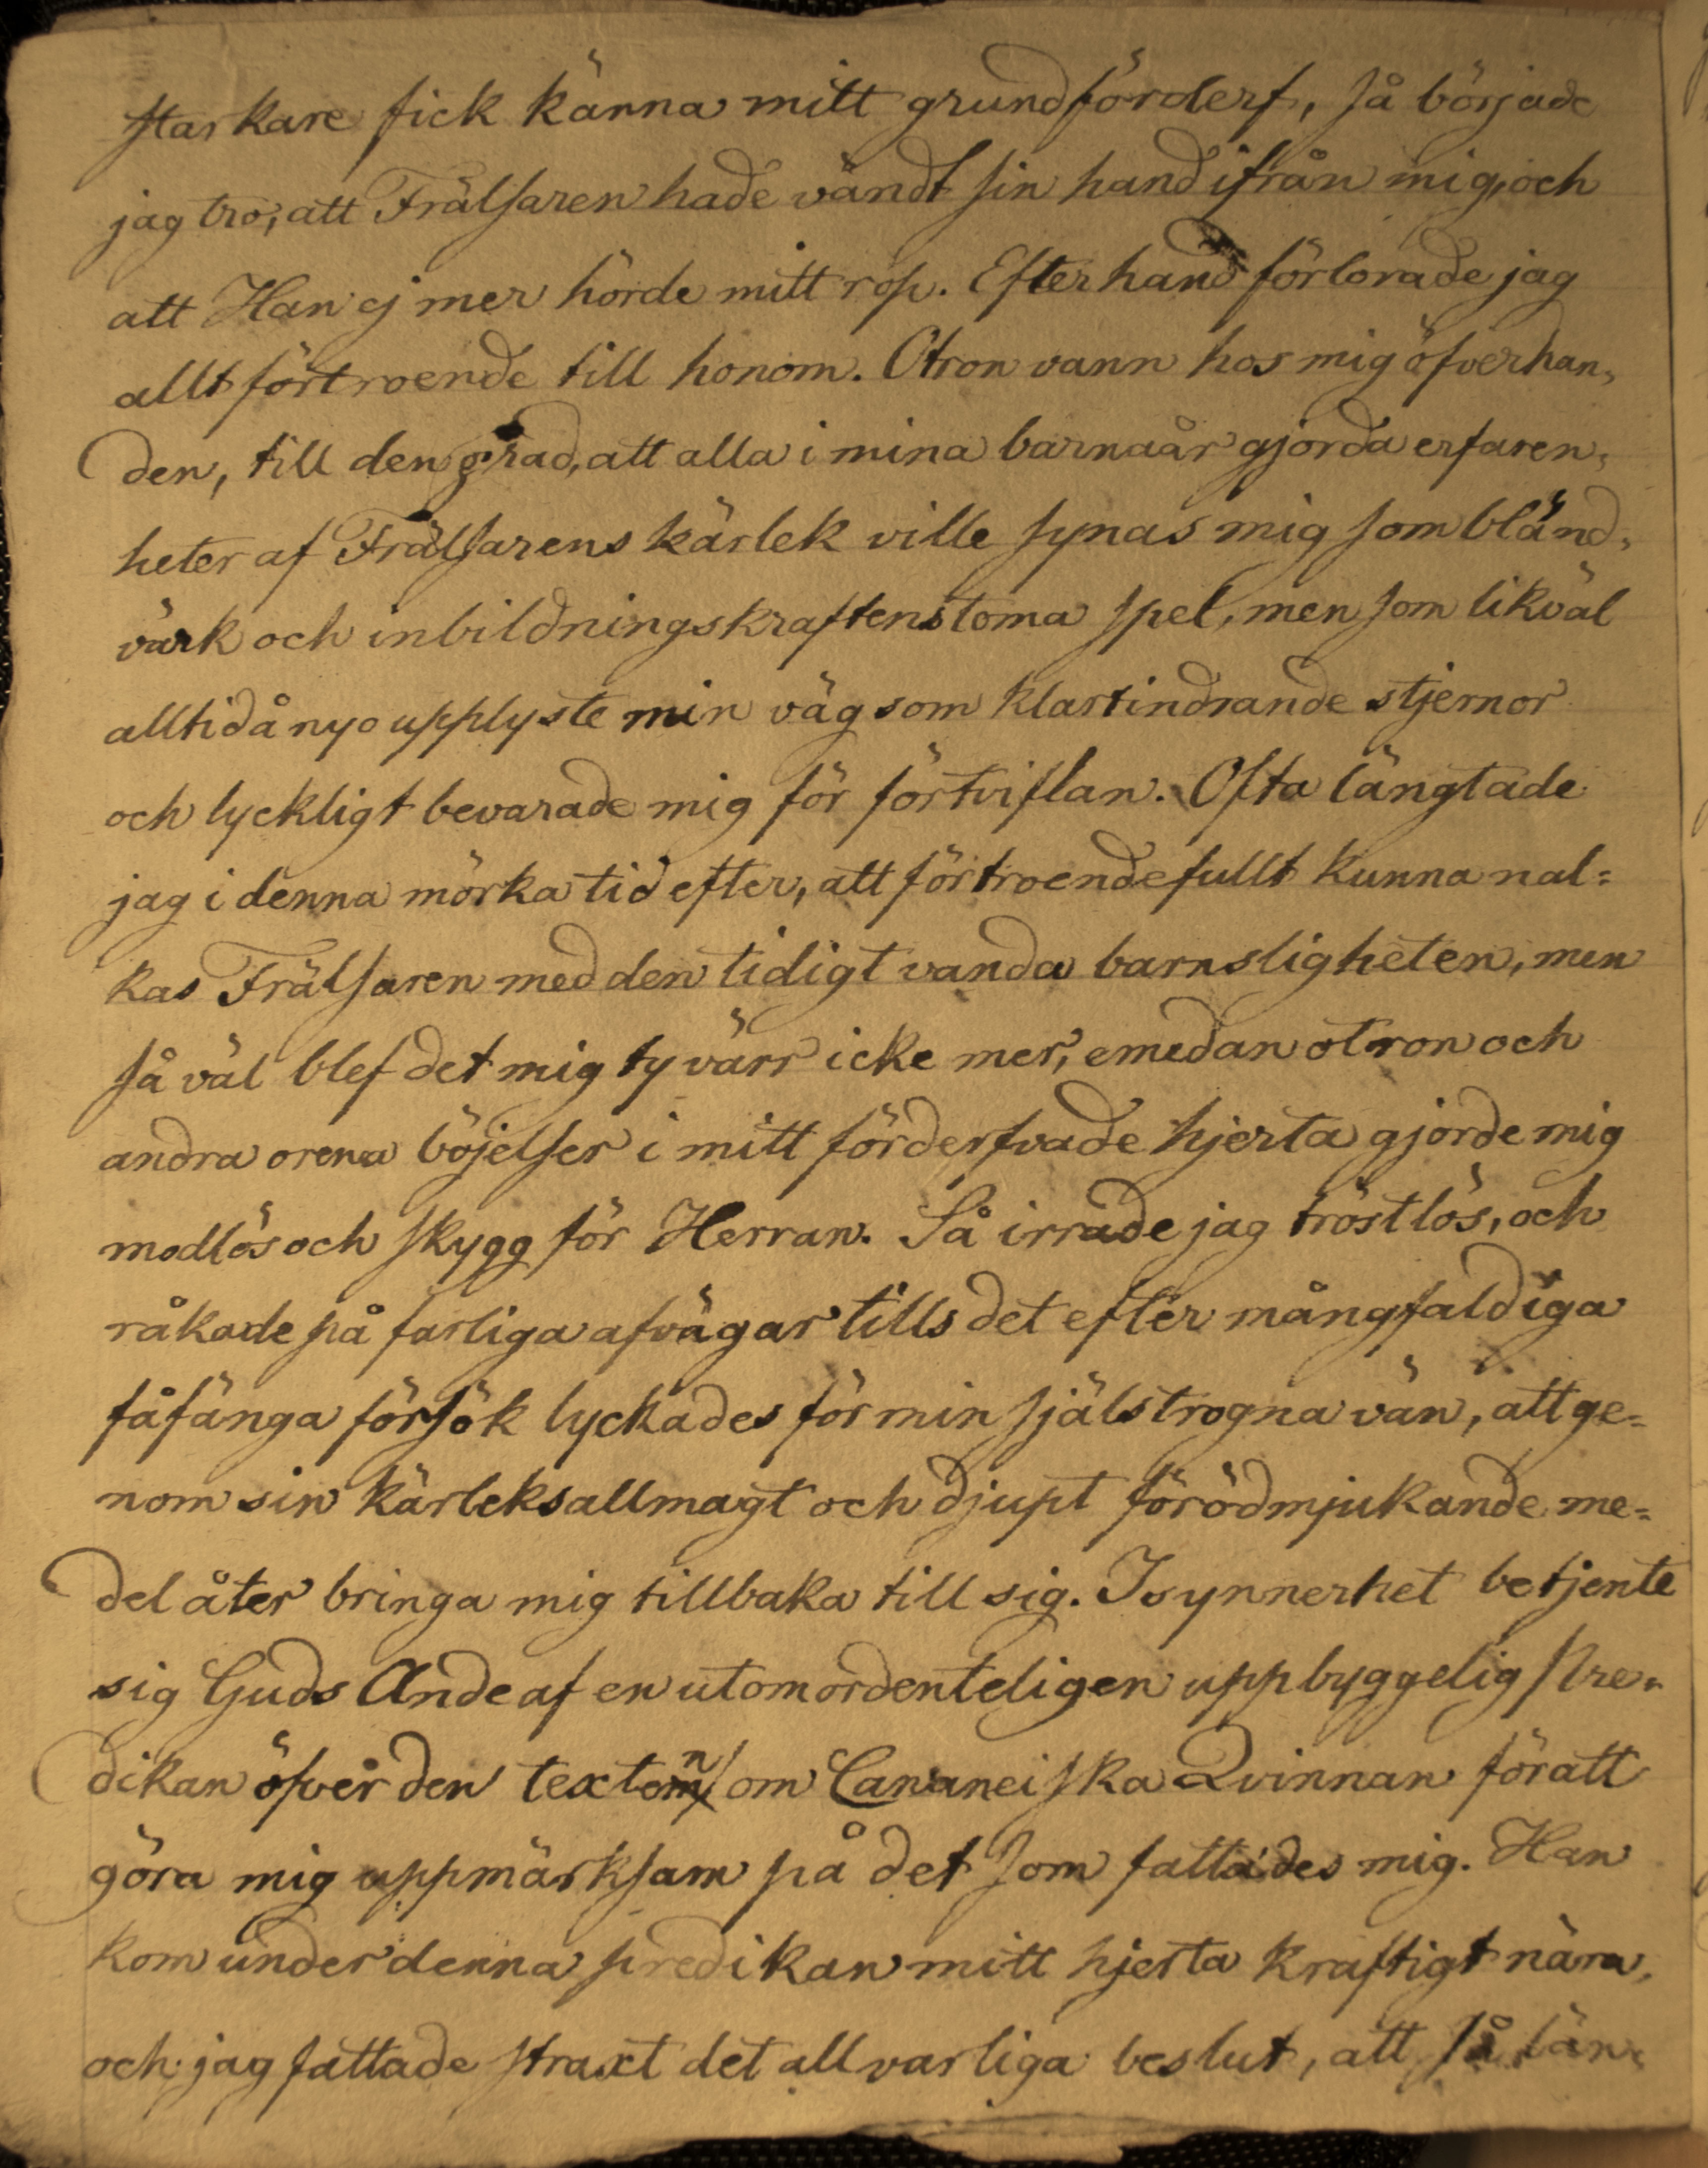 starkare fick känna mitt grundförderf, så började
jag tro, att Frälsaren hade vändt sin hand ifrån mig, och
att Han ej mer hörde mitt rop. Efterhand förlorade jag
allt förtroende till honom. Otron vann hos mig öfverhan„
den, till den grad, att alla i mina barnaår gjorda erfaren„
heter af Frälsarens kärlek ville synas mig som bländ„
värk och inbildningskraftens toma spel, men som likväl
alltid å nyo upplyste min väg som klart indrande stjernor
och lyckligt bevarade mig för förtviflan. Ofta längtade
jag i denna mörka tid efter, att förtroendefullt kunna nal=
kas Frälsaren med den tidigt vanda barnsligheten, men
så väl blef det mig ty värr icke mer, emedan otron och
andra orena böjelser i mitt förderfvade hjerta gjorde mig
modlös och skygg för Herran. Så irrade jag tröstlös, och
råkade på farliga afvägar tills det efter mångfaldiga
fåfänga försök lyckades för min själs trogna vän, att ge=
nom sin kärleksallmagt och djupt förödmjukande me=
del åter bringa mig tillbaka till sig. Isynnerhet betjente
sig Guds Ande af en utomordenteligen uppbyggelig pre„
dikan öfver den texten om Cananeiska Qvinnan för att
göra mig uppmärksam på det som fattades mig. Han
kom under denna predikan mitt hjerta kraftigt nära,
och jag fattade straxt det allvarliga beslut, att så län„